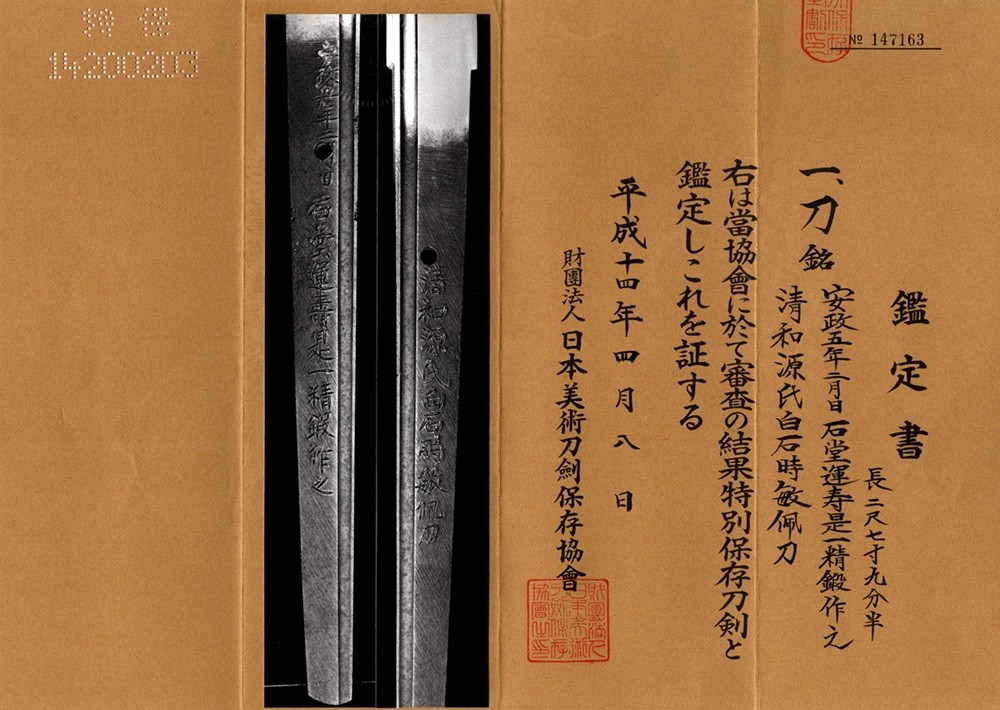 № 147163
鑑定書
長 二尺七寸九分半
一、刀 銘
安政五年二月日 石堂運寿是一精鍛作之
清和源氏白石時敏佩刀
右は當協會に於て審査の結果特別保存刀剣と
鑑定しこれを証する
平成十四年四月八日
財團法人 日本美術刀劍保存協會
財團法人
日本美術
刀劍保存
協會之印
清和源氏白石時敏佩刀
安政五年二月日 石堂運壽是一精鍛作之
特保
14200203